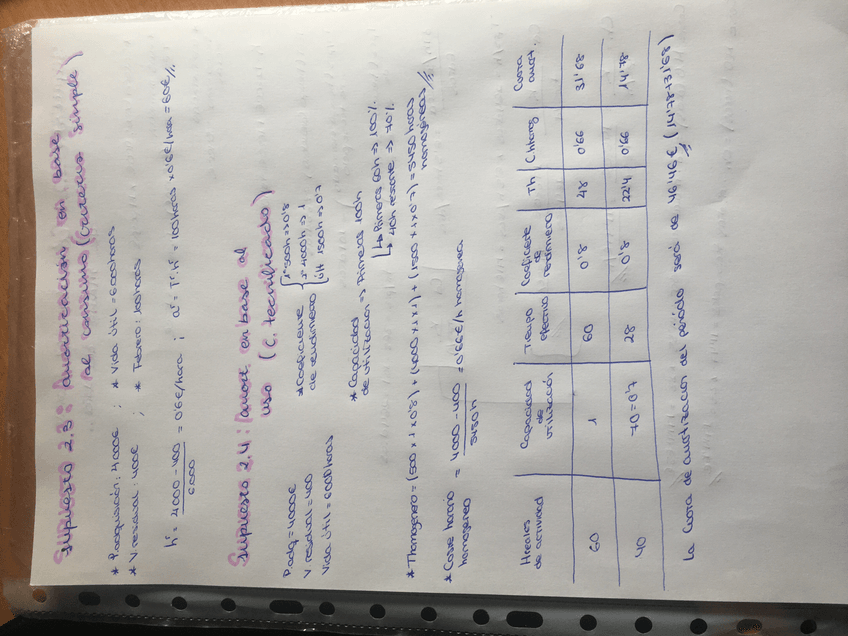 Supuesto 2.3: Amortización en base
al consumo (Criterio simple)
* P. adquisición: 4000€ ; * Vida útil = 6000 horas
* V. residual: 400€ ; * Febrero: 100 horas
h = 4000 - 400 / 6000 = 0'6€/hora ; a = T · h = 100 horas × 0'6€/hora = 60€//.
Supuesto 2.4: (amort. en base al
uso (C. tecnificado)
P. adq = 4000€
V. residual = 400
Vida útil = 6000 horas
* Coeficiente de rendimiento
1º 500h => 0'8
2º 4000h => 1
últ 1500h => 0'7
* Capacidad de utilización => Primeras 100h
↳ Primeras 60h => 100%.
↳ 40h restante => 70%.
* Thomogéneo = (500 × 1 × 0'8) + (4000 × 1 × 1) + (1500 × 1 × 0'7) = 5450 horas
homogéneas//
* Coste horario homogéneo = 4000 - 400 / 5450 h = 0'66€/h homogénea
H reales de actividad | Capacidad de utilización | Tiempo efectivo | Coeficiente de rendimiento | Th | C h homog | Cuota amort.
60 | 1 | 60 | 0'8 | 48 | 0'66 | 31'68
40 | 70 = 0'7 | 28 | 0'8 | 22'4 | 0'66 | 14'78
La cuota de amortización del período será de 46'46€ (14'78+31'68)